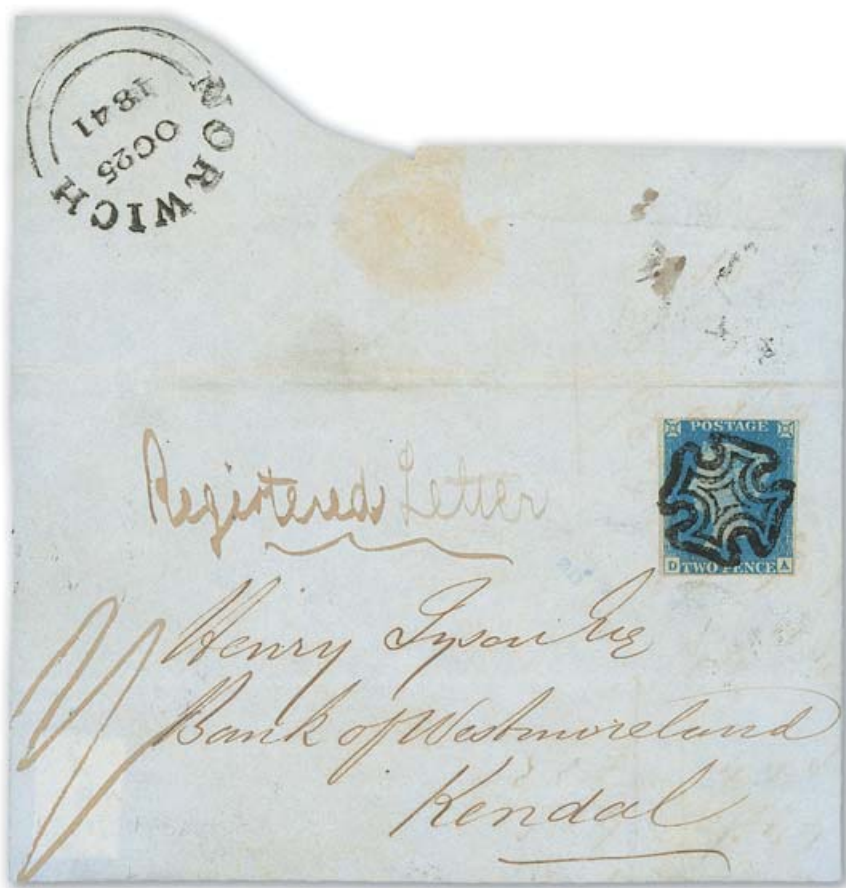 NORWICH
OC25
1841
POSTAGE
D TWO PENCE A
Registered Letter
Henry Tyson Esq
Bank of Westmoreland
Kendal